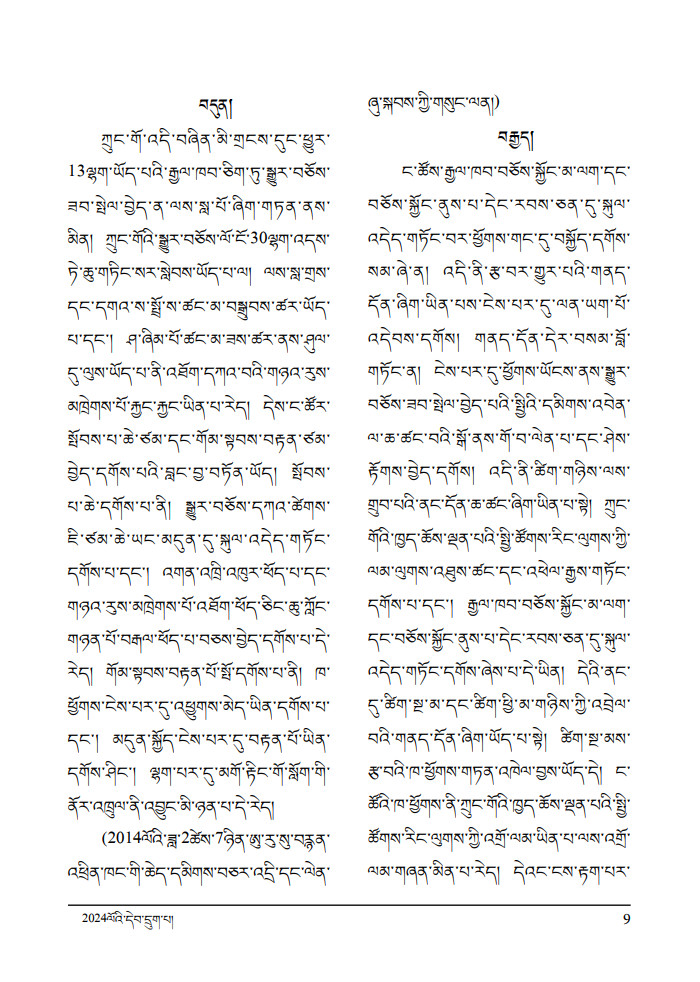 བདུན།
ཀྲུང་གོ་འདི་བཞིན་མི་གྲངས་དུང་ཕྱུར་
13ལྷག་ཡོད་པའི་རྒྱལ་ཁབ་ཅིག་ཏུ་སྒྱུར་བཅོས་
ཟབ་སྤེལ་བྱེད་ན་ལས་སླ་པོ་ཞིག་གཏན་ནས་
མིན། ཀྲུང་གོའི་སྒྱུར་བཅོས་ལོ་ངོ་30ལྷག་འདས་
ཏེ་ཆུ་གཏིང་སར་སླེབས་ཡོད་པ་ལ། ལས་སླ་གྲས་
དང་དགའ་ས་སྤྲོ་ས་ཚང་མ་བསྒྲུབས་ཚར་ཡོད་
པ་དང་། ཤ་ཞིམ་པོ་ཚང་མ་ཟས་ཚར་ནས་ཤུལ་
དུ་ལུས་ཡོད་པ་ནི་འཐོག་དཀའ་བའི་གཉའ་རུས་
མཁྲེགས་པོ་རྐྱང་རྐྱང་ཡིན་པ་རེད། དེས་ང་ཚོར་
སྤོབས་པ་ཆེ་ཙམ་དང་གོམ་སྟབས་བརྟན་ཙམ་
བྱེད་དགོས་པའི་བླང་བྱ་བཏོན་ཡོད། སྤོབས་
པ་ཆེ་དགོས་པ་ནི། སྒྱུར་བཅོས་དཀའ་ཚེགས་
ཇི་ཙམ་ཆེ་ཡང་མདུན་དུ་སྐུལ་འདེད་གཏོང་
དགོས་པ་དང་། འགན་འཁྲི་འཁུར་ཕོད་པ་དང་
གཉའ་རུས་མཁྲེགས་པོ་འཐོག་ཕོད་ཅིང་ཆུ་ཀློང་
གཉན་པོ་བརྒལ་ཕོད་པ་བཅས་བྱེད་དགོས་པ་དེ་
རེད། གོམ་སྟབས་བརྟན་པོ་སྤོ་དགོས་པ་ནི། ཁ་
ཕྱོགས་ངེས་པར་དུ་འཕྱུགས་མེད་ཡིན་དགོས་པ་
དང་། མདུན་སྐྱོད་ངེས་པར་དུ་བརྟན་པོ་ཡིན་
དགོས་ཤིང་། ལྷག་པར་དུ་མགོ་རྟིང་གོ་སློག་གི་
ནོར་འཁྲུལ་ནི་འབྱུང་མི་ཉན་པ་དེ་རེད།
(2014ལོའི་ཟླ་2ཚེས་7ཉིན་ཨུ་རུ་སུ་བརྙན་
འཕྲིན་ཁང་གི་ཆེད་དམིགས་བཅར་འདྲི་དང་ལེན་
ཞུ་སྐབས་ཀྱི་གསུང་ལན།)
བརྒྱད།
ང་ཚོས་རྒྱལ་ཁབ་བཅོས་སྐྱོང་མ་ལག་དང་
བཅོས་སྐྱོང་ནུས་པ་དེང་རབས་ཅན་དུ་སྐུལ་
འདེད་གཏོང་བར་ཕྱོགས་གང་དུ་བསྐྱོད་དགོས་
སམ་ཞེ་ན། འདི་ནི་རྩ་བར་གྱུར་པའི་གནད་
དོན་ཞིག་ཡིན་པས་ངེས་པར་དུ་ལན་ཡག་པོ་
འདེབས་དགོས། གནད་དོན་དེར་བསམ་བློ་
གཏོང་ན། ངེས་པར་དུ་ཕྱོགས་ཡོངས་ནས་སྒྱུར་
བཅོས་ཟབ་སྤེལ་བྱེད་པའི་སྤྱིའི་དམིགས་འབེན་
ལ་ཆ་ཚང་བའི་སྒོ་ནས་གོ་བ་ལེན་པ་དང་ཤེས་
རྟོགས་བྱེད་དགོས། འདི་ནི་ཚིག་གཉིས་ལས་
གྲུབ་པའི་ནང་དོན་ཆ་ཚང་ཞིག་ཡིན་པ་སྟེ། ཀྲུང་
གོའི་ཁྱད་ཆོས་ལྡན་པའི་སྤྱི་ཚོགས་རིང་ལུགས་ཀྱི་
ལམ་ལུགས་འཐུས་ཚང་དང་འཕེལ་རྒྱས་གཏོང་
དགོས་པ་དང་། རྒྱལ་ཁབ་བཅོས་སྐྱོང་མ་ལག་
དང་བཅོས་སྐྱོང་ནུས་པ་དེང་རབས་ཅན་དུ་སྐུལ་
འདེད་གཏོང་དགོས་ཞེས་པ་དེ་ཡིན། དེའི་ནང་
དུ་ཚིག་སྔ་མ་དང་ཚིག་ཕྱི་མ་གཉིས་ཀྱི་འབྲེལ་
བའི་གནད་དོན་ཞིག་ཡོད་པ་སྟེ། ཚིག་སྔ་མས་
རྩ་བའི་ཁ་ཕྱོགས་གཏན་འཁེལ་བྱས་ཡོད་དེ། ང་
ཚོའི་ཁ་ཕྱོགས་ནི་ཀྲུང་གོའི་ཁྱད་ཆོས་ལྡན་པའི་སྤྱི་
ཚོགས་རིང་ལུགས་ཀྱི་འགྲོ་ལམ་ཡིན་པ་ལས་འགྲོ་
ལམ་གཞན་མིན་པ་རེད། དེའང་ངས་རྟག་པར་
2024ལོའི་དེབ་དྲུག་པ། 9